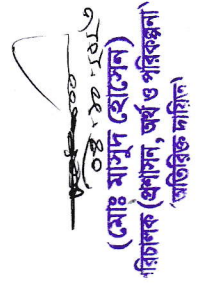 (মোঃ মাসুদ হোসেন)
পরিচালক (প্রশাসন, অর্থ ও পরিকল্পনা)
অতিরিক্ত দায়িত্ব